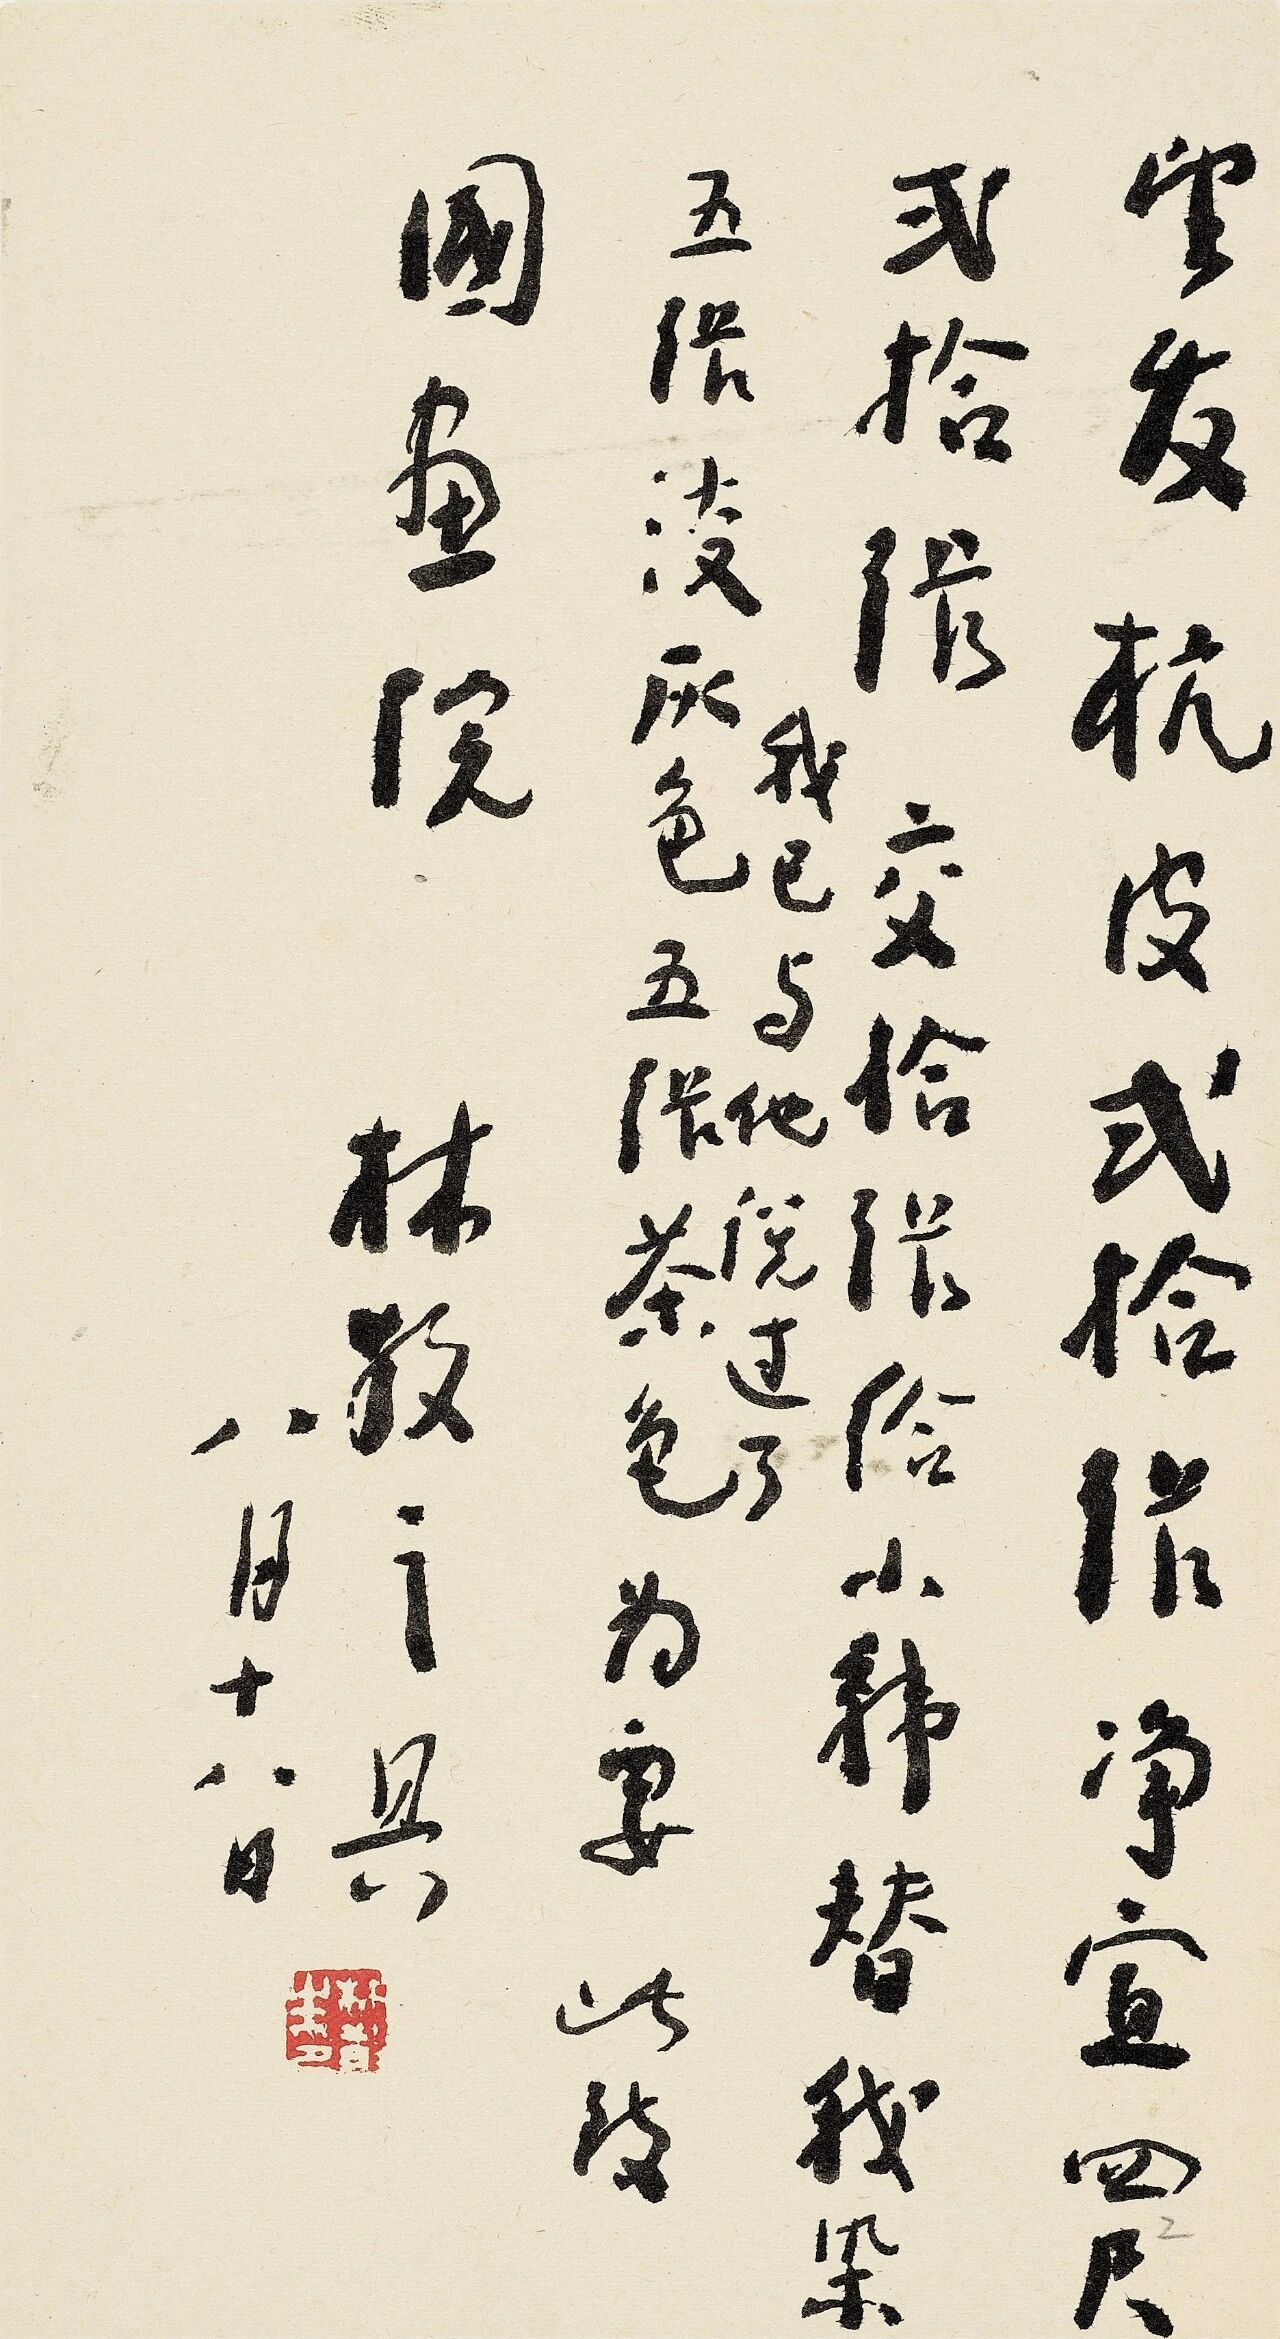 望发杭皮弍拾张净宣四尺
弍拾张交拾张给小韩替我染
我已与他说过了
五张淡灰色五张茶色为要此致
國画院
林散之具
八月十八日